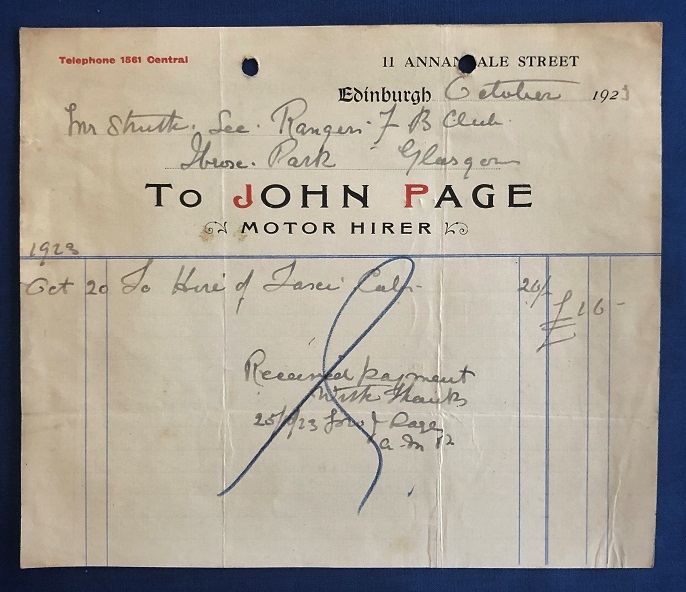 Telephone 1561 Central
11 ANNANDALE STREET
Edinburgh October 1923
Mr Struth. Sec. Rangers F B Club.
Ibrox. Park Glasgow
TO JOHN PAGE
MOTOR HIRER
1923
Oct 20 To Hire of Taxi Cab 26/- £1 6-
Received payment
With Thanks
25/ /23 for J Page